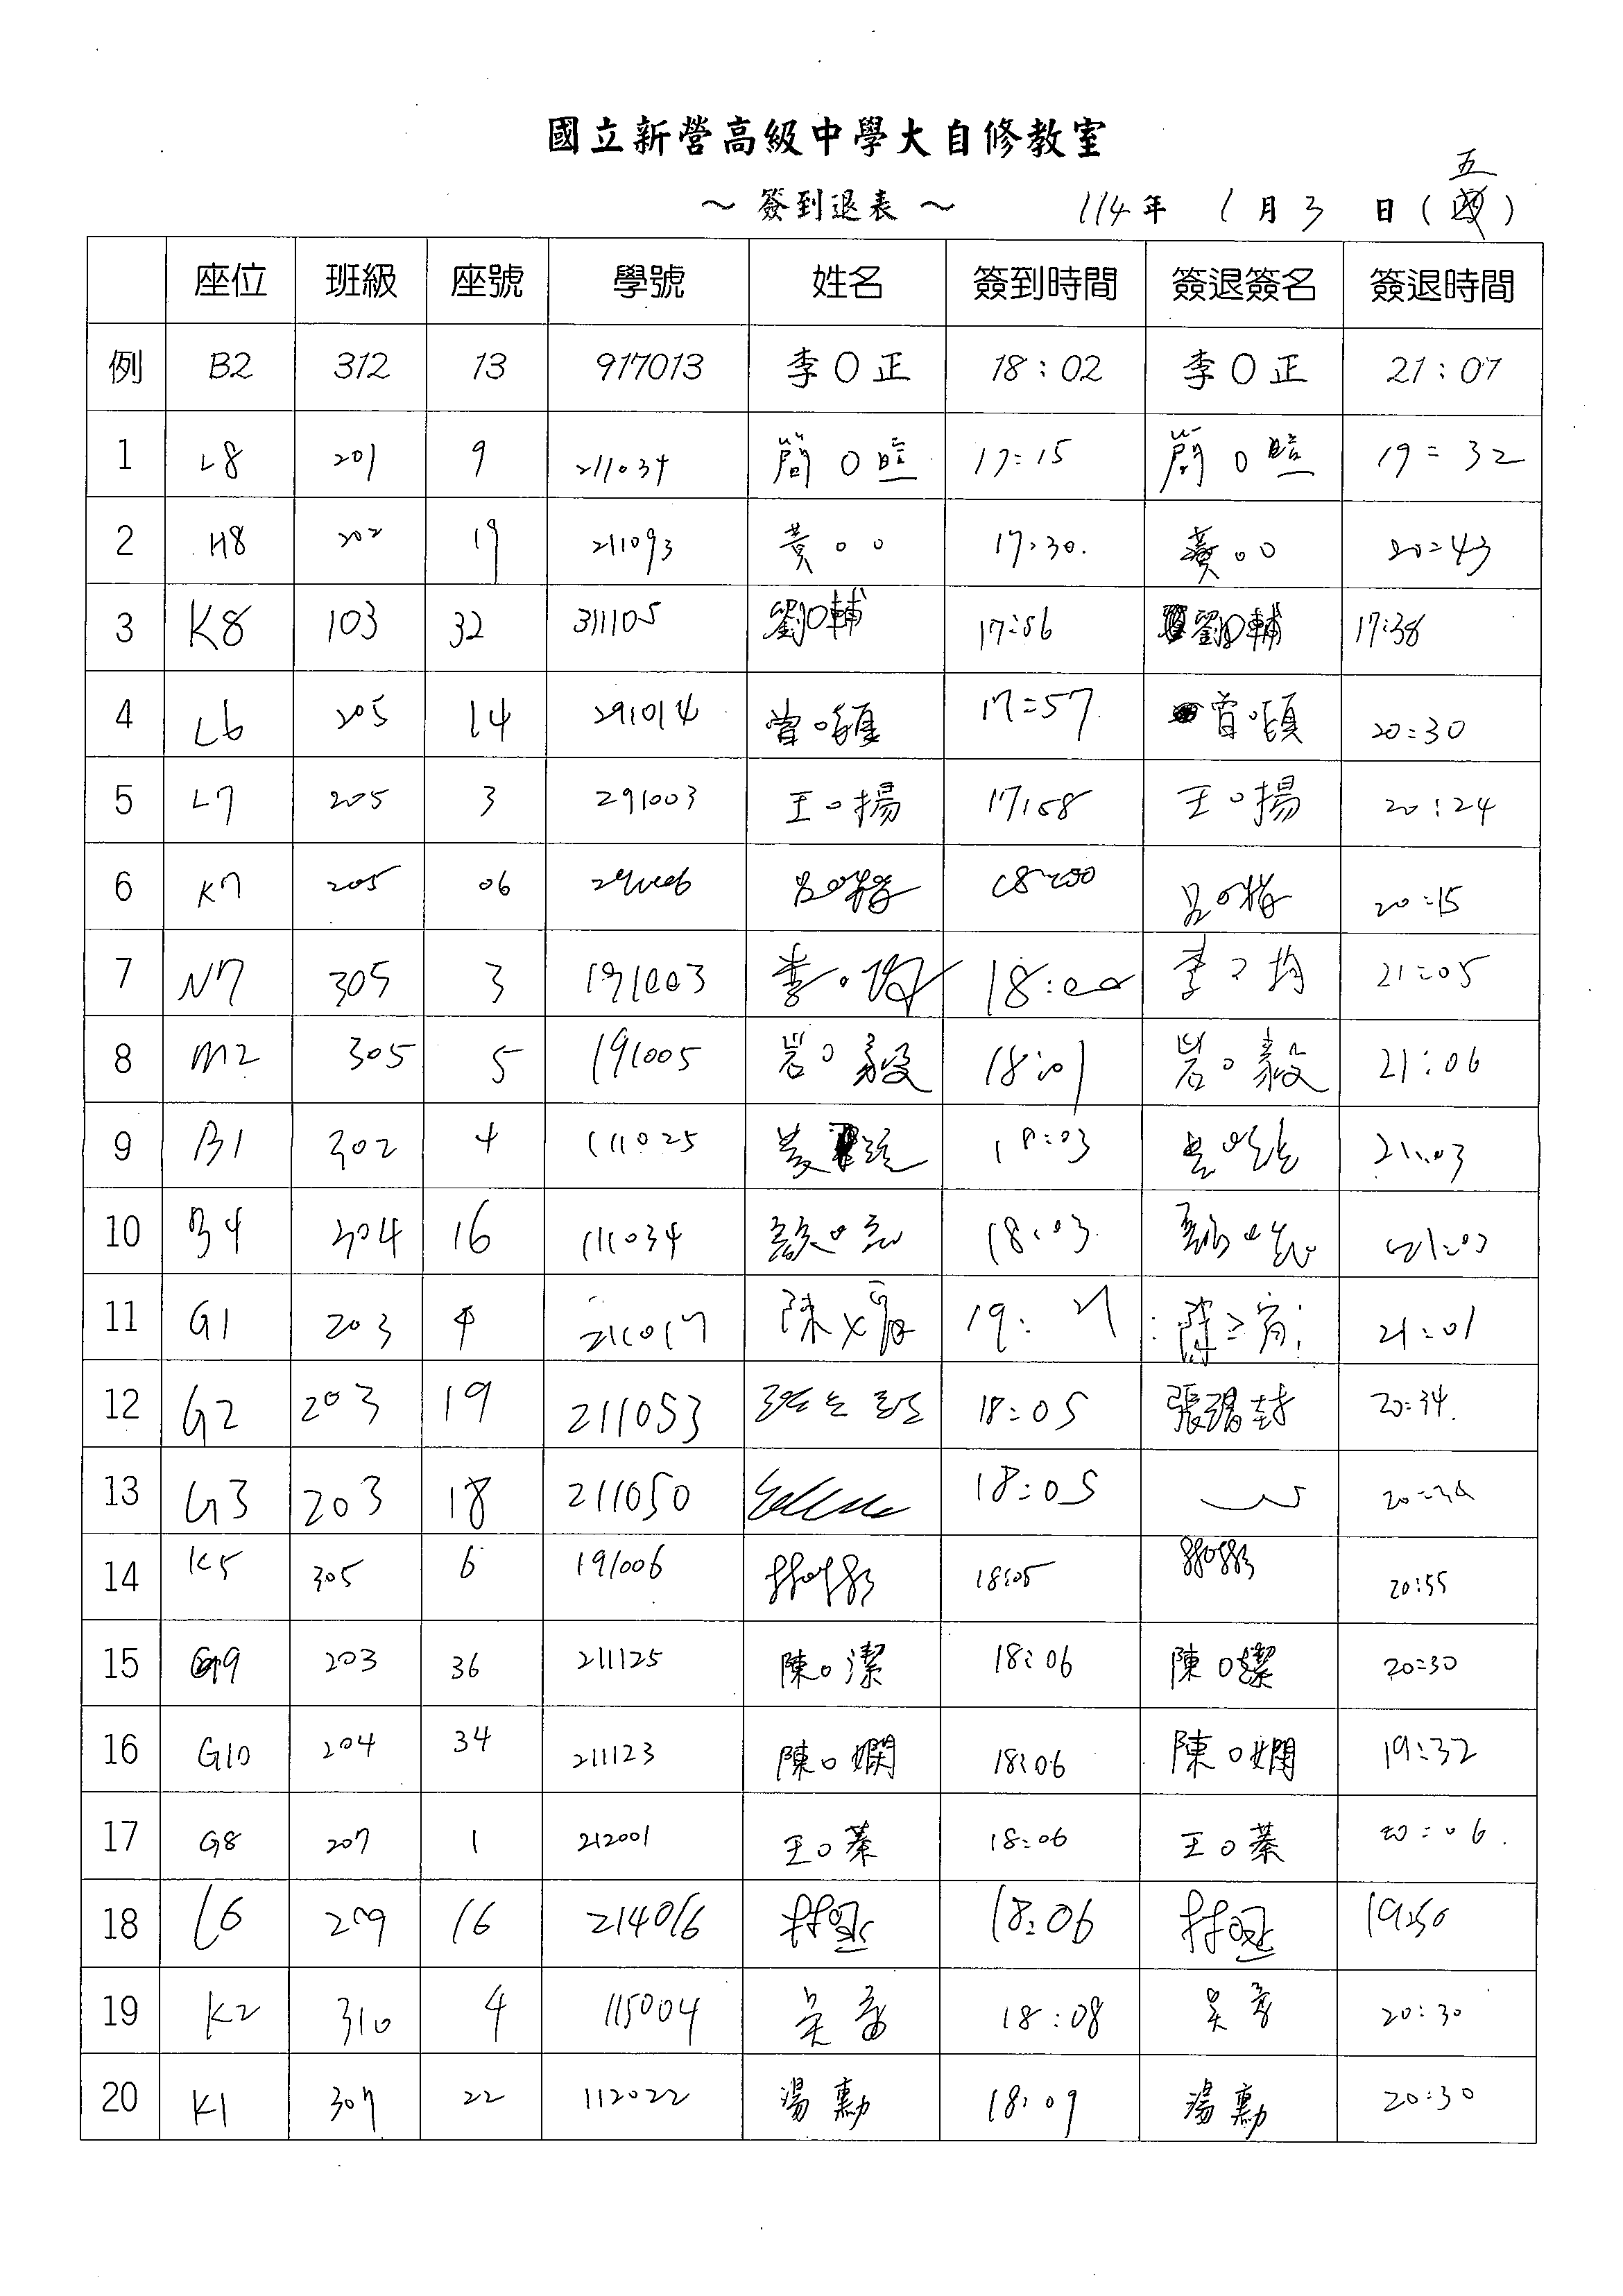 國立新營高級中學大自修教室
～ 簽到退表 ～ 114年 1月3日(五)
座位 班級 座號 學號 姓名 簽到時間 簽退簽名 簽退時間
例 B2 312 13 917013 李O正 18:02 李O正 21:07
1 L8 201 9 211034 簡O暄 17:15 簡O暄 19:32
2 H8 202 19 211093 黃○○ 17:30. 黃○○ 20:43
3 K8 103 32 311105 劉O輔 17:56 劉O輔 17:38
4 L6 205 14 291014 曾○ 17:57 曾○ 20:30
5 L7 205 3 291003 王○揚 17:58 王○揚 20:24
6 K7 205 06 291006 呂O 18:00 呂O 20:15
7 N7 305 3 191003 李○均 18:00 李 均 21:05
8 M2 305 5 191005 岩○毅 18:01 岩○毅 21:06
9 B1 302 4 111025 18:03 21:03
10 B4 304 16 111034 顏○ 18:03 顏○ 21:03
11 G1 203 4 211017 陳 19:21 陳 21:01
12 G2 203 19 211053 18:05 張 20:34
13 G3 203 18 211050 18:05 20:34
14 K5 305 6 191006 18:05 20:55
15 G9 203 36 211125 陳○潔 18:06 陳O潔 20:30
16 G10 204 34 211123 陳○嫻 18:06 陳○嫻 19:32
17 G8 207 1 212001 王○蓁 18:06 王○蓁 20:06.
18 L6 209 16 214016 林 18:06 林 19:50
19 K2 310 4 115004 吳 18:08 吳 20:30
20 K1 307 22 112022 湯勳 18:09 湯勳 20:30